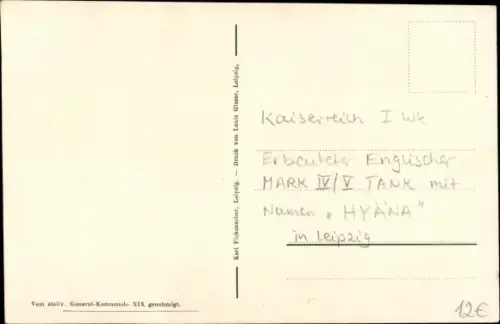 Kaiserreich I WK
Erbeuteter Englischer
MARK IV/V TANK mit
Namen „HYÄNA"
in Leipzig
Karl Fichtmüller, Leipzig. — Druck von Louis Glaser, Leipzig.
Vom stellv. General-Kommando XIX genehmigt.
12€